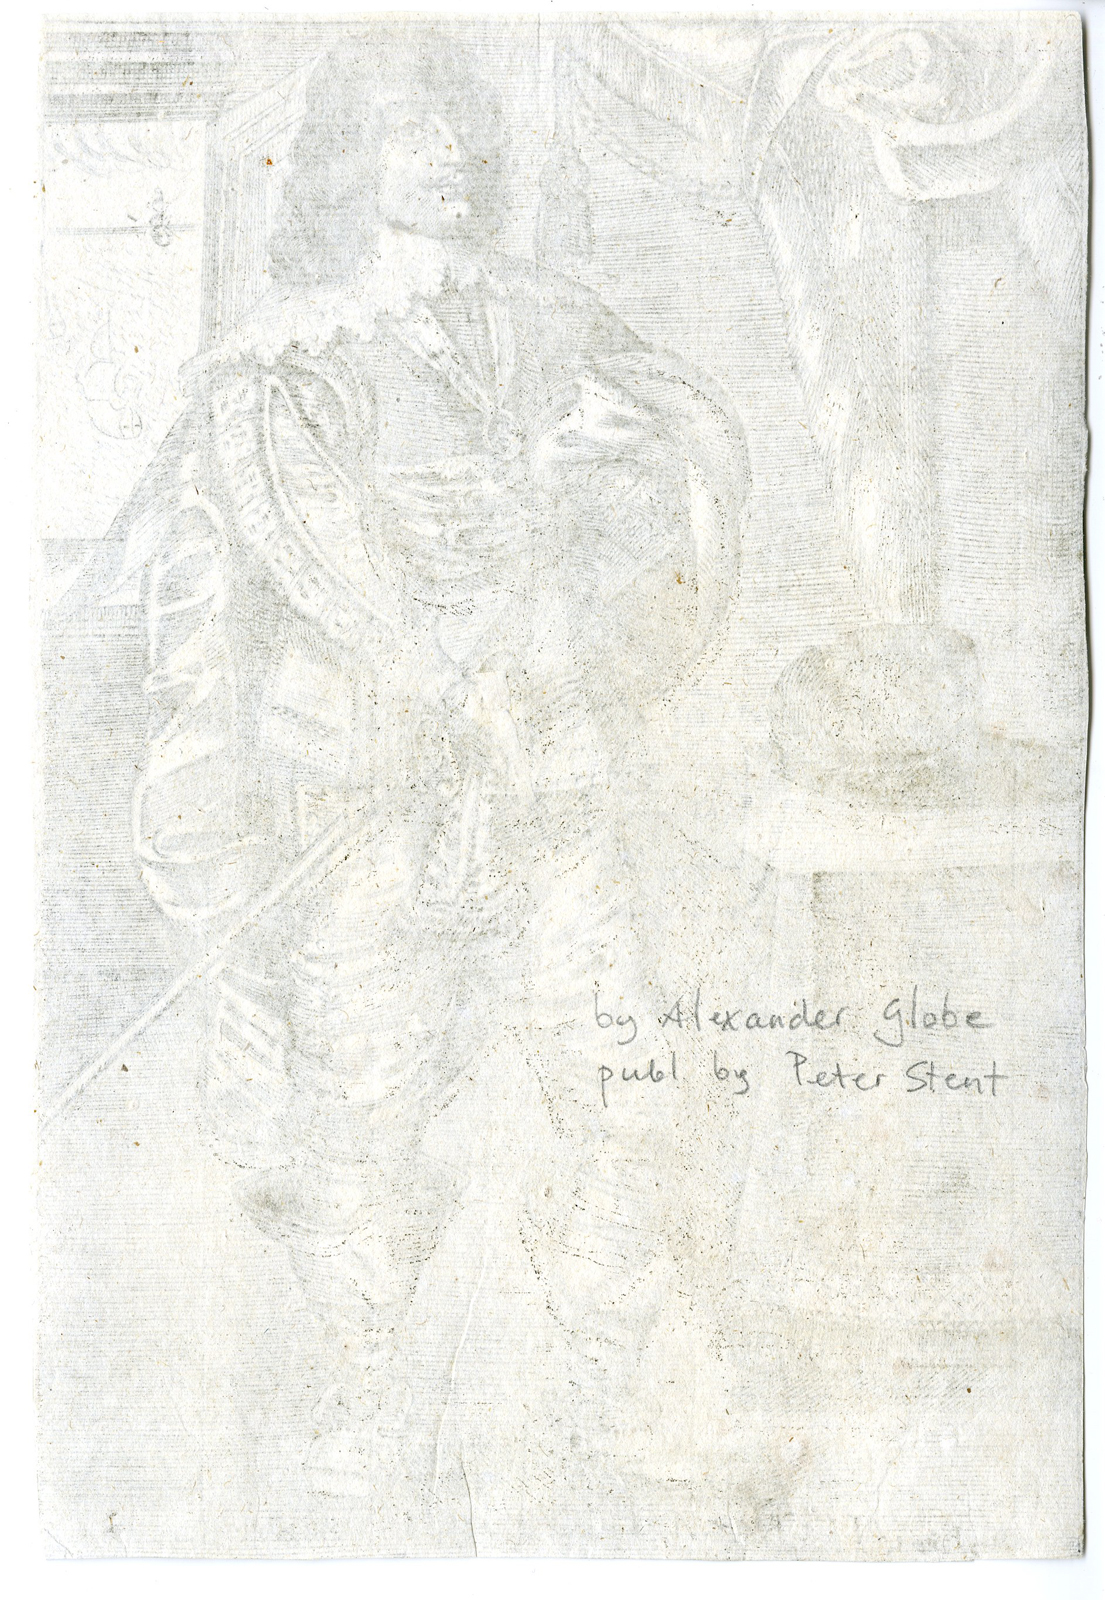 by Alexander Globe
publ by Peter Stent